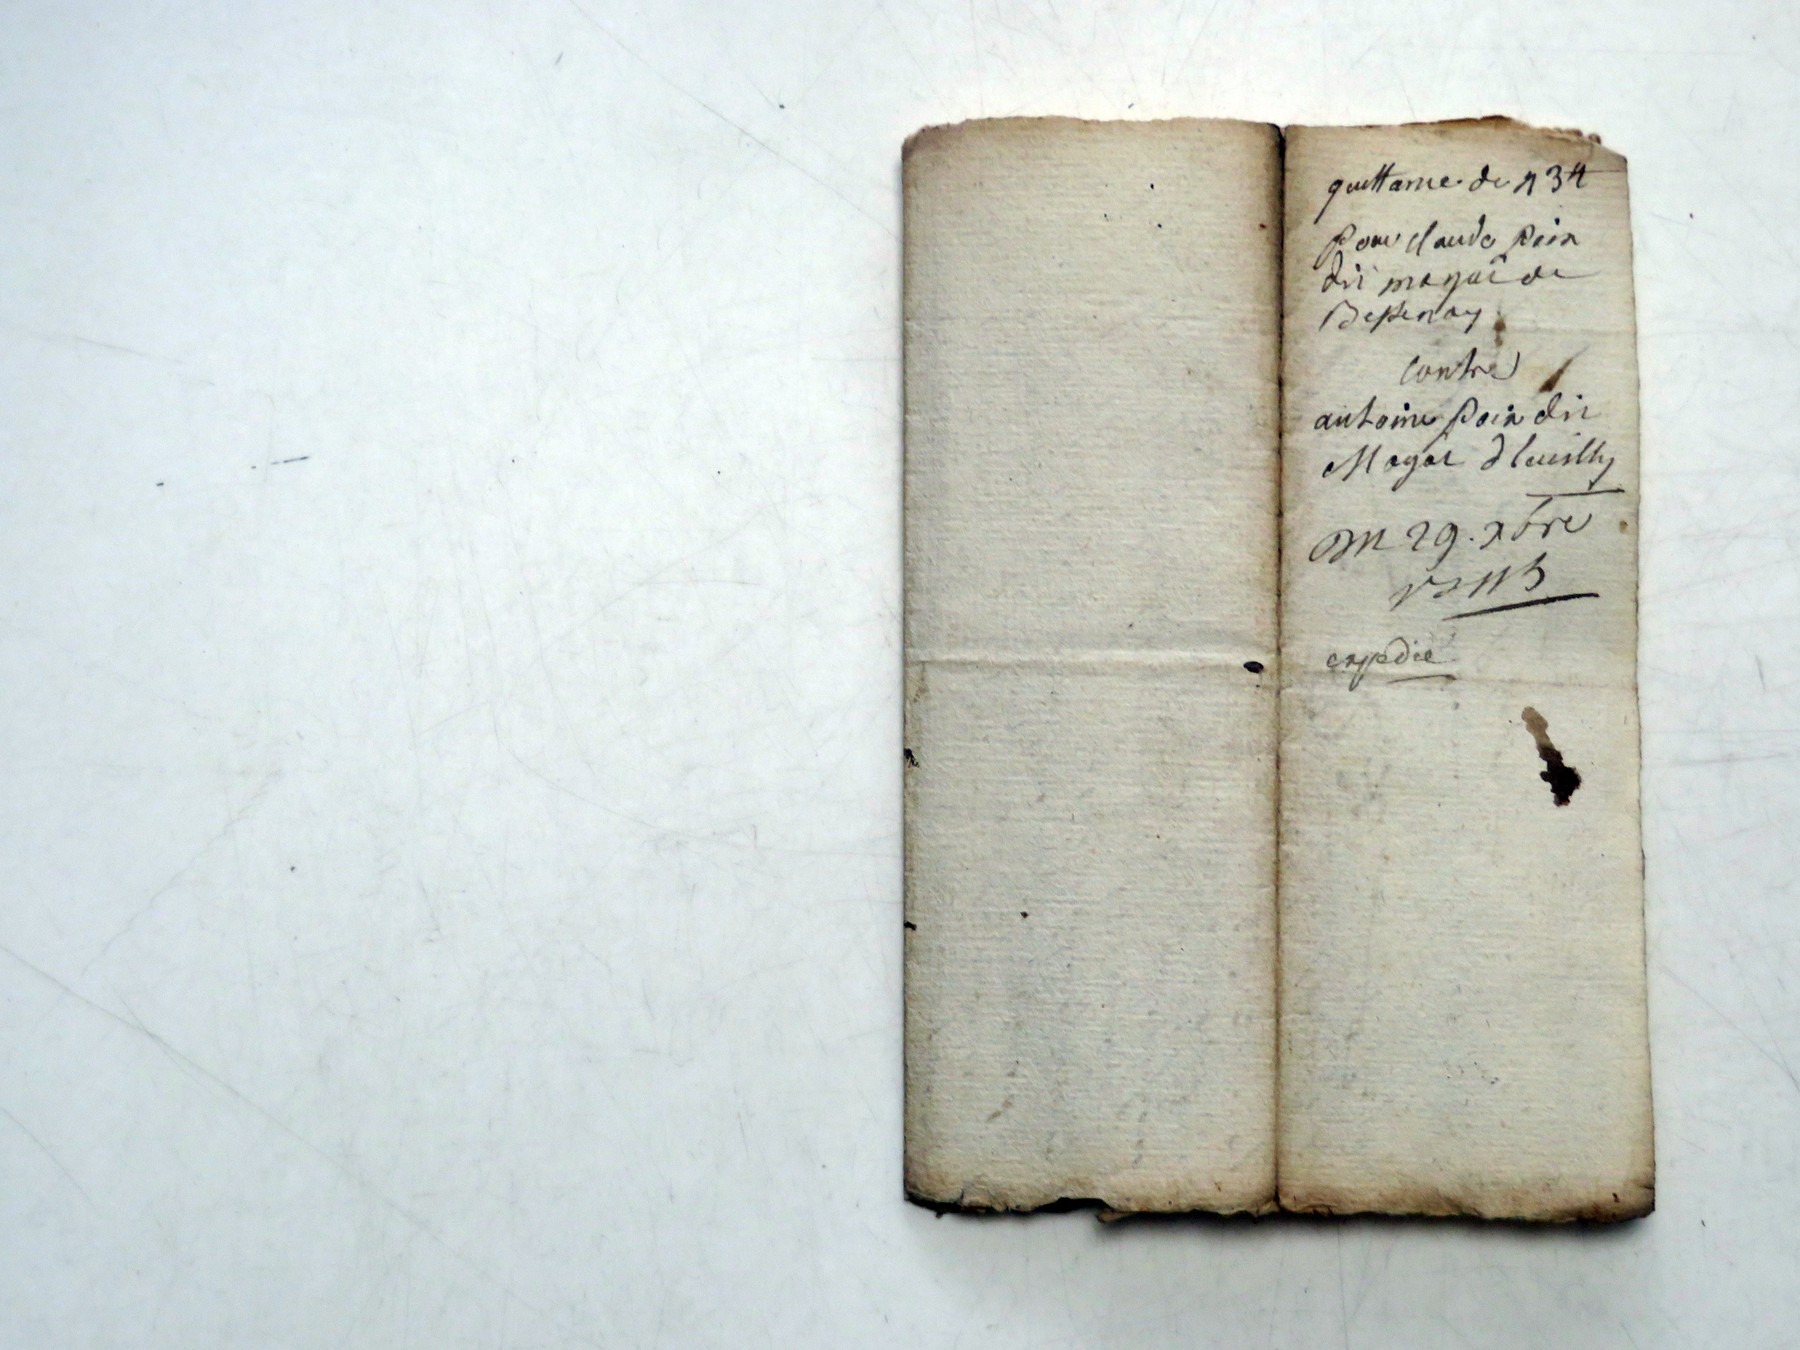 quittance de 434
Pour claude Paix
dit magat de
Bessenay
contre
antoine Paix dit
Magat
Du 29. xbre
expedié